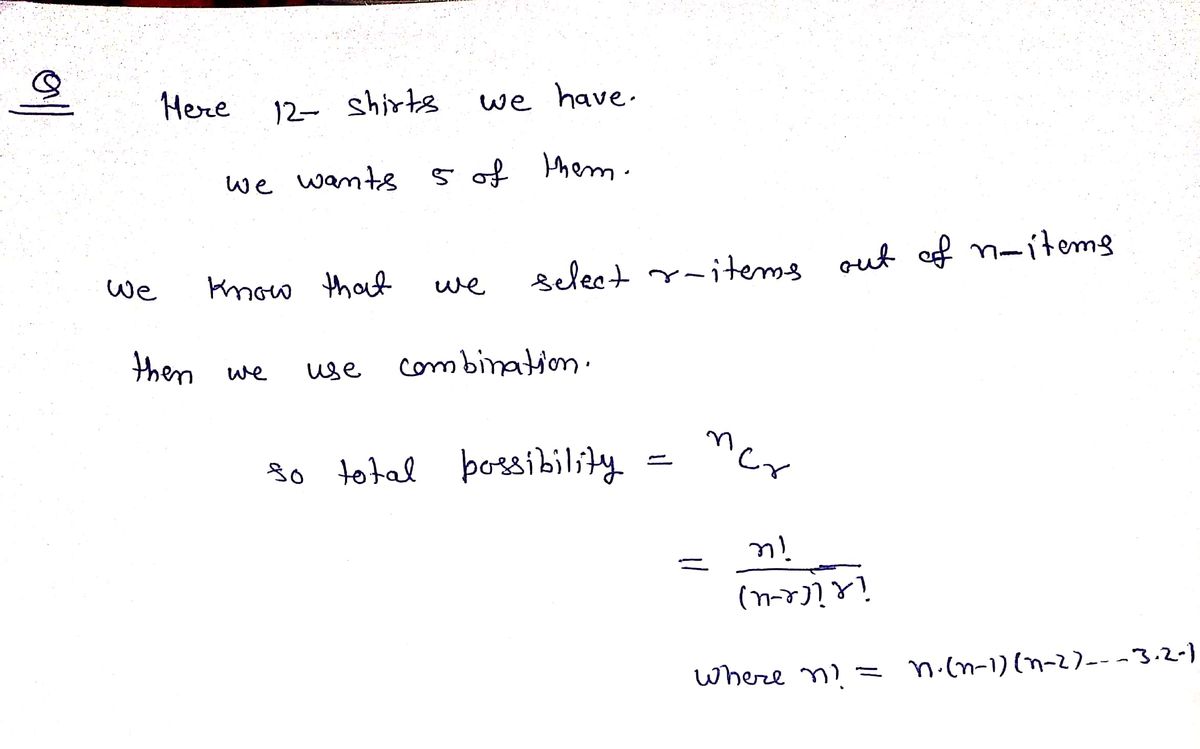 Q
Here 12- shirts we have.
we wants 5 of them.
we know that we select r-items out of n-items
then we use combination.
so total possibility = ⁿCᵣ
= n! / (n-r)! r!
where n! = n.(n-1)(n-2)---3.2.1